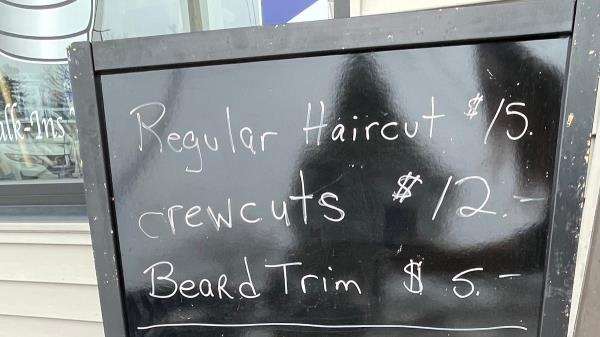 Regular Haircut $15.
crewcuts $12.-
Beard Trim $5.-